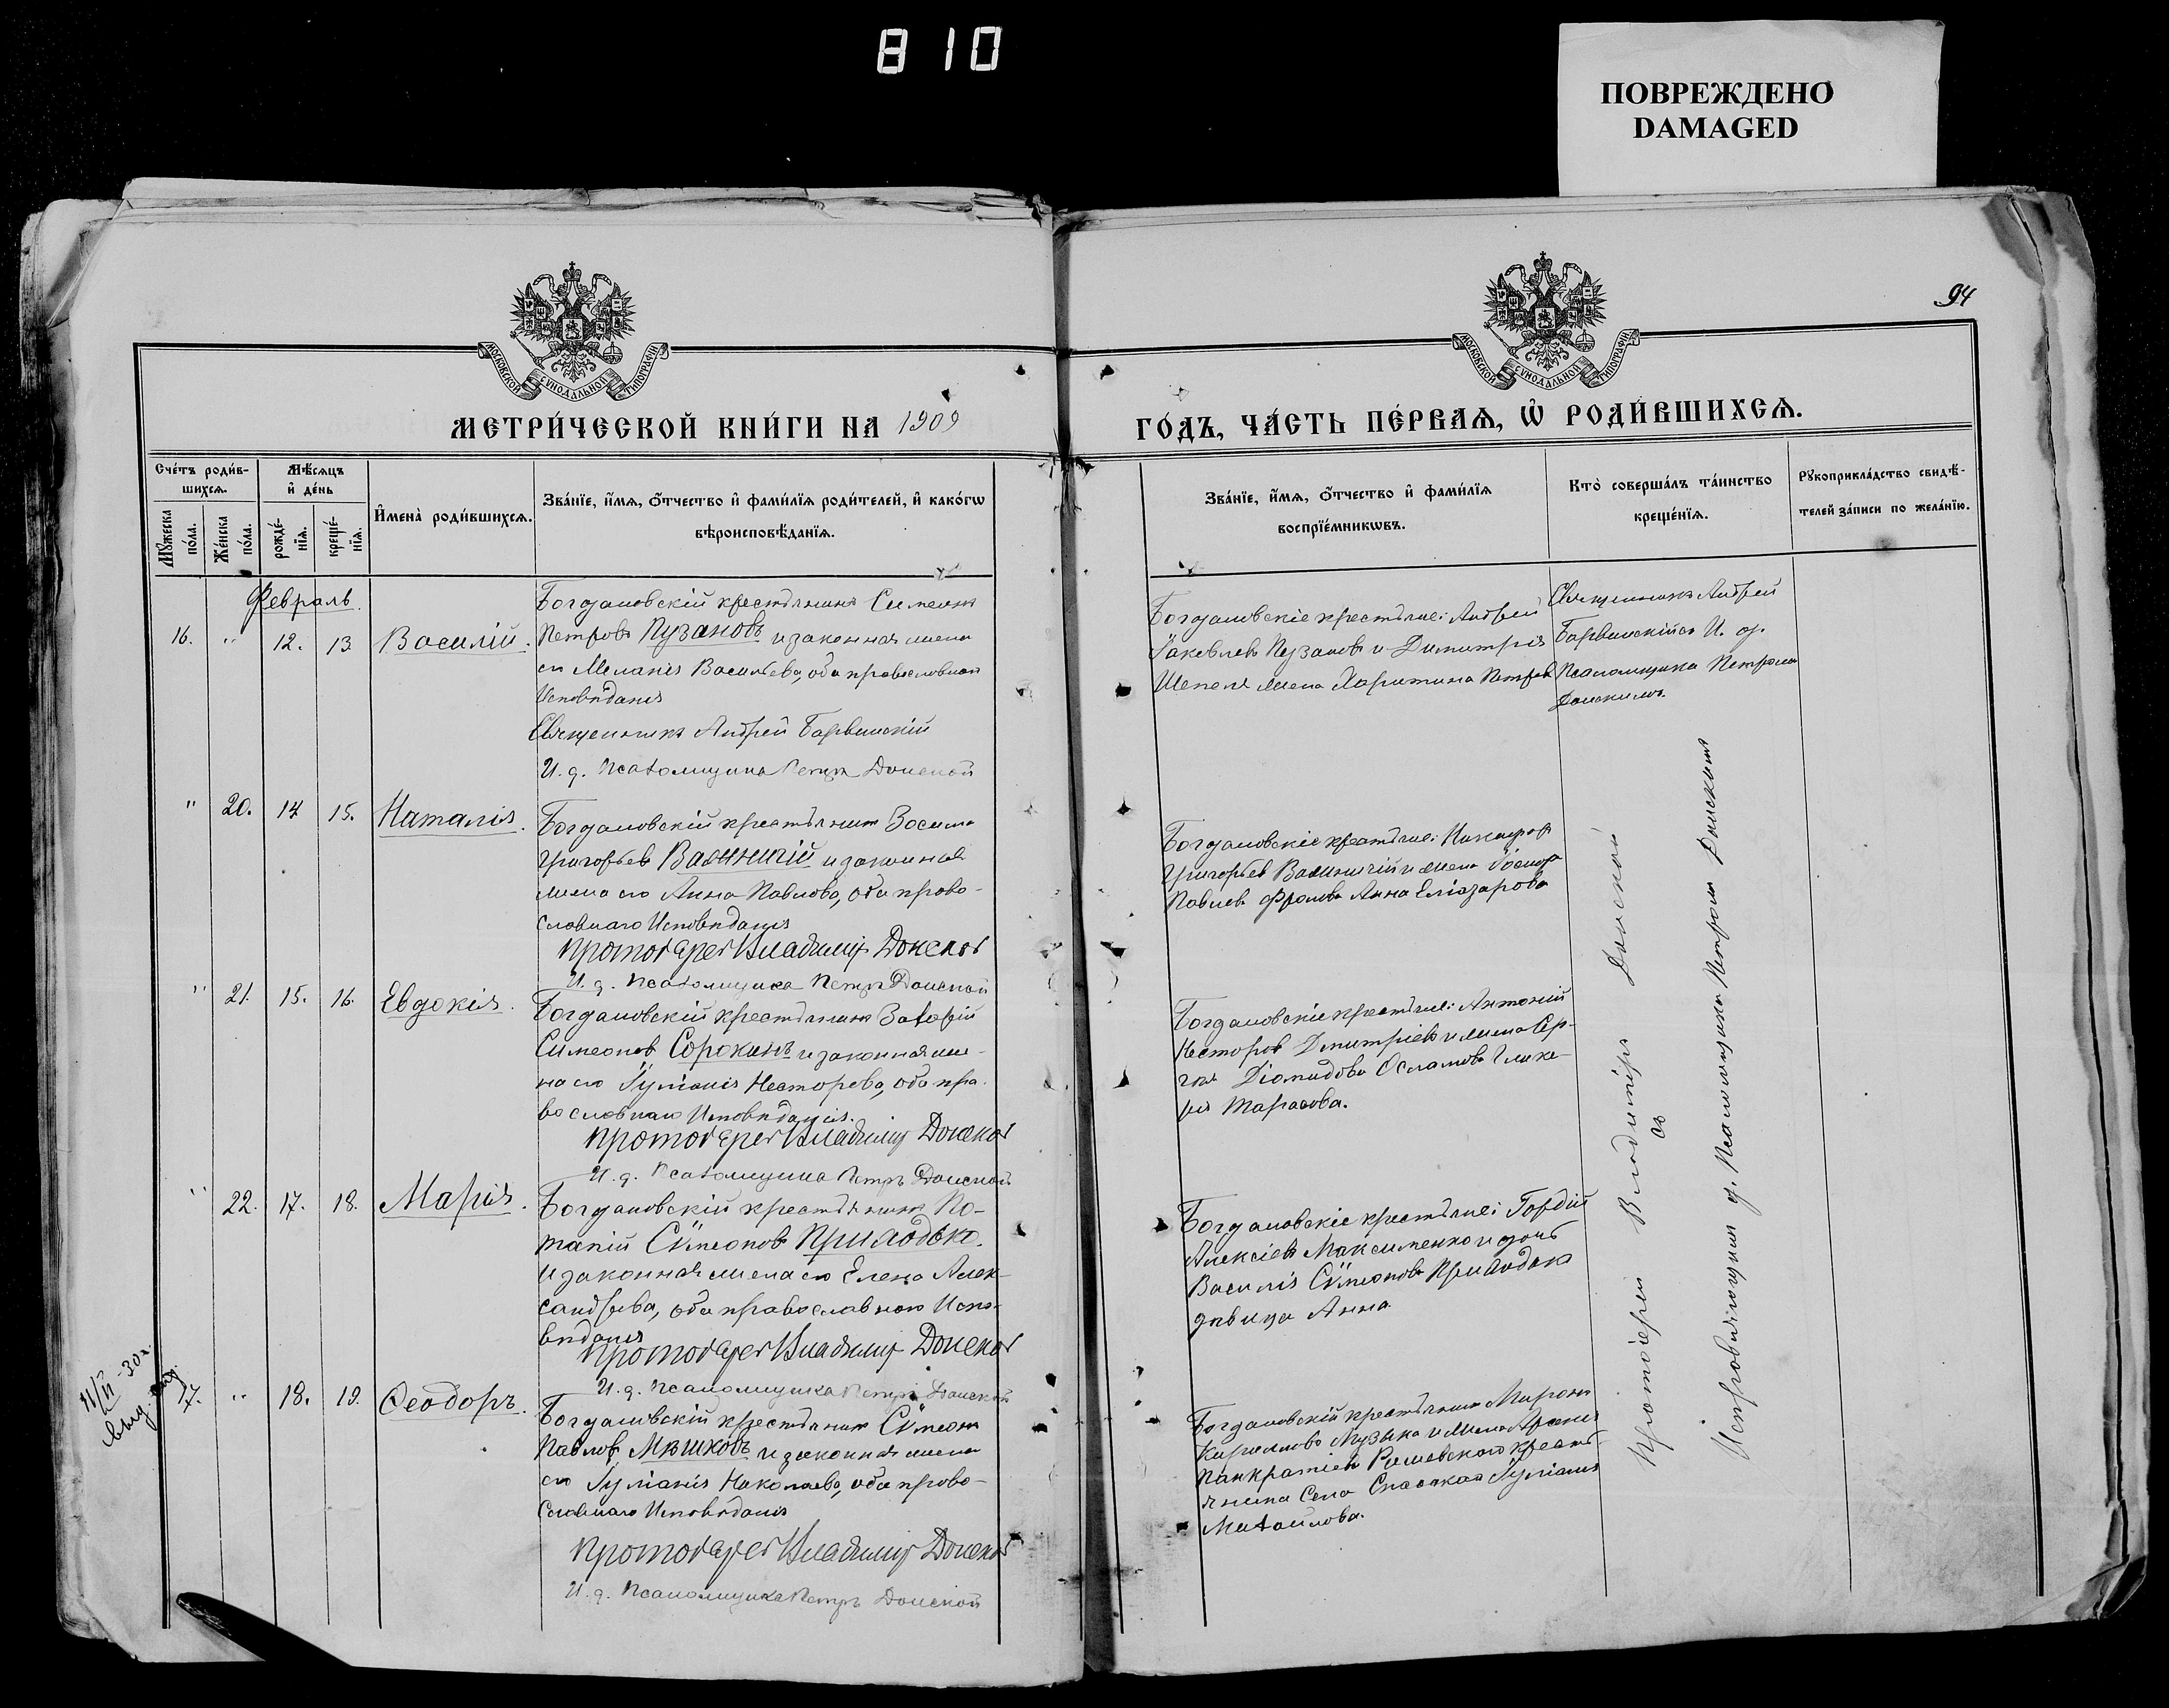 810
ПОВРЕЖДЕНО
DAMAGED
94
МОСКОВСКОЙ СѴНОДАЛЬНОЙ ТИПОГРАФІИ
МОСКОВСКОЙ СѴНОДАЛЬНОЙ ТИПОГРАФІИ
МЕТРИ́ЧЕСКОЙ КНИ́ГИ НА 1909
ГО́ДЪ, ЧА́СТЬ ПЕ́РВАЯ, Ѡ҆ РОДИ́ВШИХСЯ.
Сче́тъ роди́в-
шихся.
Мѣ́сяцъ
и҆ де́нь
Му́жеска
по́ла.
Же́нска
по́ла.
рожде́-
нїя.
креще́-
нїя.
И҆мена̀ роди́вшихся.
Зва́нїе, и҆́мя, ѻ҆́тчество и҆ фами́лїя роди́телей, и҆ како́гѡ
вѣроисповѣ́данїя.
Зва́нїе, и҆́мя, ѻ҆́тчество и҆ фами́лїя
воспрїе́мникѡвъ.
Кто̀ соверша́лъ та́инство
креще́нїя.
Рꙋкоприкла́дство свидѣ́-
телей за́писи по жела́нїю.
Февраль.
16. " 12. 13 Василій.
Богдановскій крестьянинъ Симеонъ
Петровъ Пузановъ и законная жена
его Меланія Васильева, оба православнаго
Исповѣданія
Священникъ Андрей Барвинскій
И. д. Псаломщика Петръ Донской
Богдановскіе крестьяне: Андрей
Іаковлевъ Пузановъ и Димитрія
Шепеля жена Харитина Петрова
Священникъ Андрей
Барвинскій съ И. д.
Псаломщика Петромъ
Донскимъ.
" 20. 14 15. Наталія.
Богдановскій крестьянинъ Зосима
Григорьевъ и законная
жена его Анна Павлова, оба право-
славнаго Исповѣданія
Протоіерей Владимір Донской
И. д. Псаломщика Петръ Донской
Богдановскіе крестьяне: Никифоръ
Григорьевъ и жена Іосифа
Павлова Фролова Анна Еліазарова
" 21. 15. 16. Евдокія.
Богдановскій крестьянинъ Захарій
Симеоновъ Сорокинъ и законная же-
на его Іуліанія Несторова, оба пра-
вославнаго Исповѣданія.
Протоіерей Владимір Донской
И. д. Псаломщика Петръ Донской
Богдановскіе крестьяне: Антоній
Несторовъ Дмитріевъ и жена Сер-
гія Діомидова Глике-
рія Тарасова.
" 22. 17. 18. Марія.
Богдановскій крестьянинъ По-
тапій Сѵмеоновъ Приходько
и законная жена его Елена Алек-
сандрова, оба православнаго Испо-
вѣданія
Протоіерей Владимір Донской
И. д. Псаломщика Петръ Донской
Богдановскіе крестьяне: Гордій
Алексіевъ Максименко и дочь
Василія Сѵмеонова Приходька
дѣвица Анна
11/II-30 г.
17. " 18. 19. Ѳеодоръ.
Богдановскій крестьянинъ Сѵмеонъ
Павловъ Мѣшковъ и законная жена
его Іуліанія Николаева, оба право-
славнаго Исповѣданія
Протоіерей Владимір Донской
И. д. Псаломщика Петръ Донской
Богдановскій крестьянинъ Миронъ
Кирилловъ Музыка и жена
Панкратіева крестьь-
янина Села Спасскаго Іуліанія
Михайлова.
Протоіерей Владиміръ Донской
съ
И. д. Псаломщика Петромъ Донскимъ